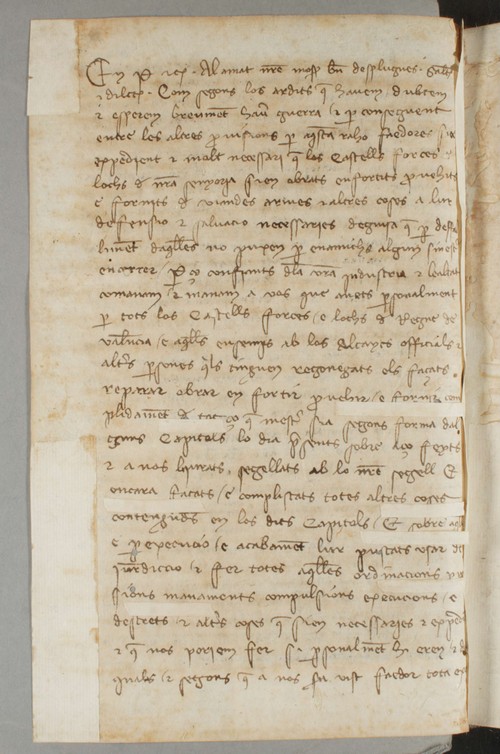 En P. etc. Al amat nre mossen bn despluges
e dilcçio. Com segons los ardits q havem dubtem
e esperem breument haver guerra e p conseguent
entre les altres provisions p aqsta raho faedores sia
expedient e molt necessari q los Castells forces e
lochs de nra senyoria sien obrats enfortits provehits
e fornits de viandes armes e altres coses a lur
defensio e salvacio necessaries deguisa q p defa
liment daqlles no puixen p enamichs algun sinestre
encorrer P ço confiants dla vra industria e lealtat
comanam e manam a vos que anets psonalment
p tots los Castells forces e lochs del Regne de
valencia e aqlls ensemps ab los Alcayts officials e
altrs psones qls tinguen regonegats els façats
reparar obrar enfortir provehir e fornir com
plidament de tot ço q mestr sia segons forma dal
cuns Capitols lo dia psents sobre aço feyts
e a vos liurats, segellats ab lo nre segell E
encara façats e complissats totes altres coses
contengudes en los dits Capitols E sobre aço
e p execucio e acabament lur puscats usar de
jurdiccio e fer totes aqlles ordinacions pro
sions manaments compulsions execucions e
destrets e altrs coses q sien necessaries e expedients
e q nos poriem fer si psonalment hi erem e
quals e segons q a vos sia vist faedor tota